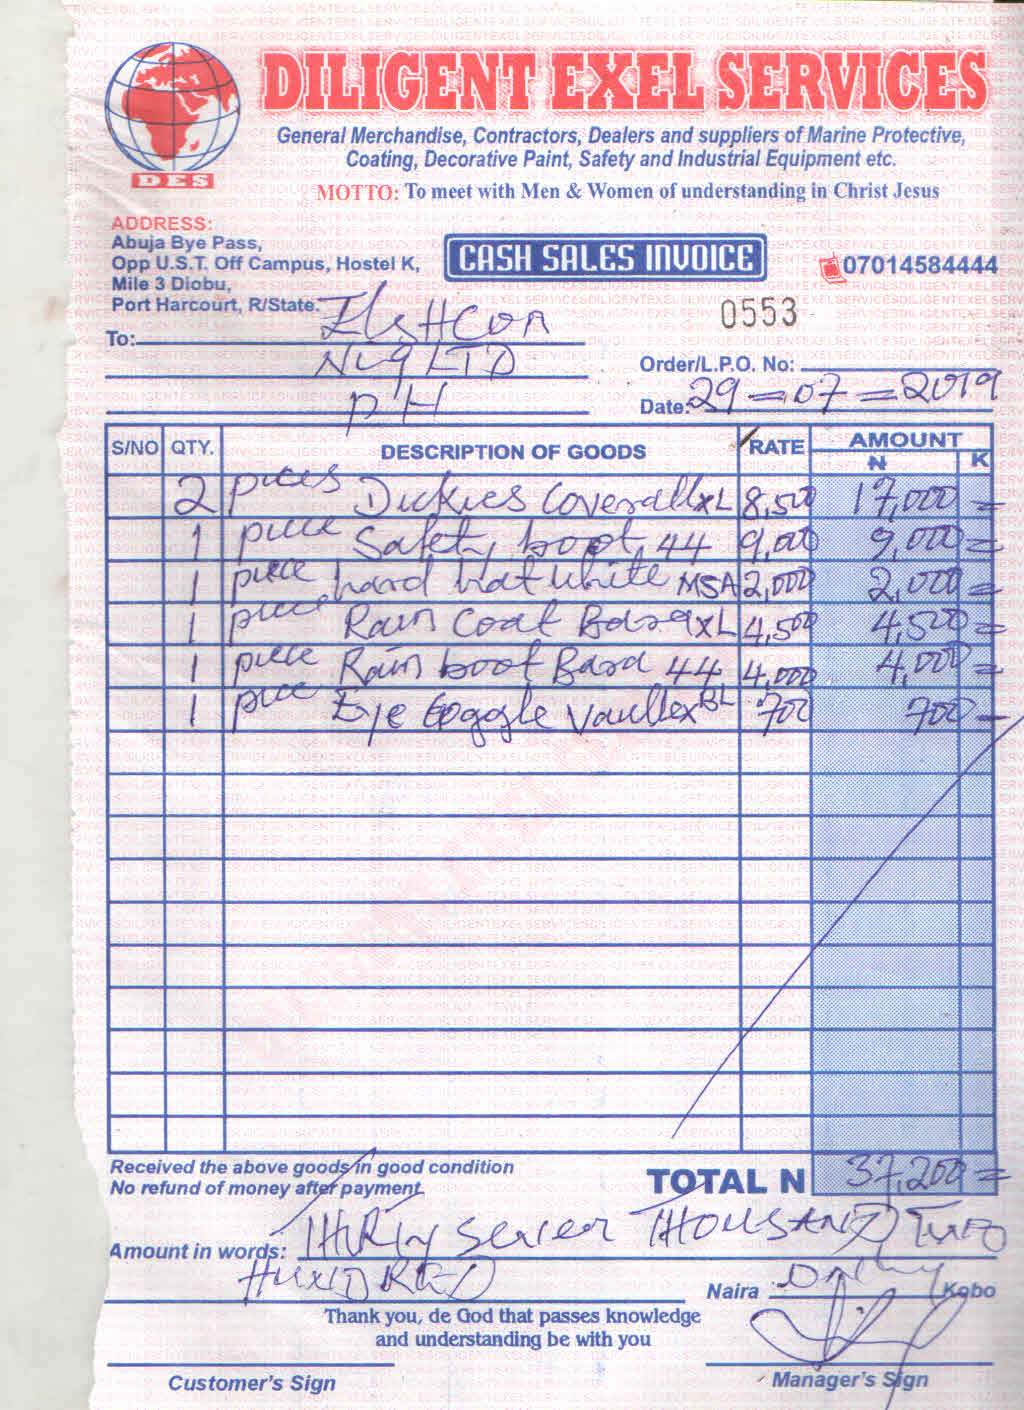 DILIGENT EXEL SERVICES
General Merchandise, Contractors, Dealers and suppliers of Marine Protective,
Coating, Decorative Paint, Safety and Industrial Equipment etc.
DES
MOTTO: To meet with Men & Women of understanding in Christ Jesus
ADDRESS:
Abuja Bye Pass,
Opp U.S.T. Off Campus, Hostel K,
Mile 3 Diobu,
Port Harcourt, R/State.
CASH SALES INVOICE
07014584444
0553
To:
Nig LTD
PH
Order/L.P.O. No:
Date: 29=07=2019
S/NO QTY. DESCRIPTION OF GOODS RATE AMOUNT
₦ K
2 pieces Dickies Coverall XL 8,500 17,000 =
1 piece Safety boot 44 9,000 9,000 =
1 piece hard hat white MSA 2,000 2,000 =
1 piece Rain Coat XL 4,500 4,500 =
1 piece Rain boot 44 4,000 4,000 =
1 piece Eye Goggle Vaultex BL 700 700 –
Received the above goods in good condition
No refund of money after payment
TOTAL N 37,200 =
Amount in words: THIRTY Seven THOUSAND Two
HUNDRED Naira Only Kobo
Thank you, de God that passes knowledge
and understanding be with you
Customer's Sign
Manager's Sign